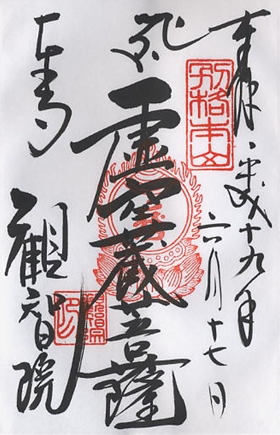 奉拝 平成十九年
六月十七日
別格本山
五大
虚空蔵菩薩
東寺
觀智院